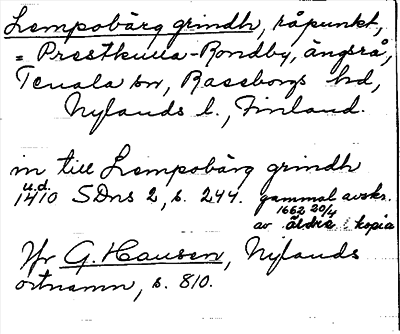 Lempobärg grindh, råpunkt,
= Prestkulla-Rondby, ängsrå,
Tenala sn, Raseborgs hd,
Nylands l., Finland.
in till Lempobärg grindh
u.d.
1410 SDns 2, s. 244. gammal avskr.
1662 20/4
av äldre kopia
Jfr G. Hausen, Nylands
ortnamn, s. 810.